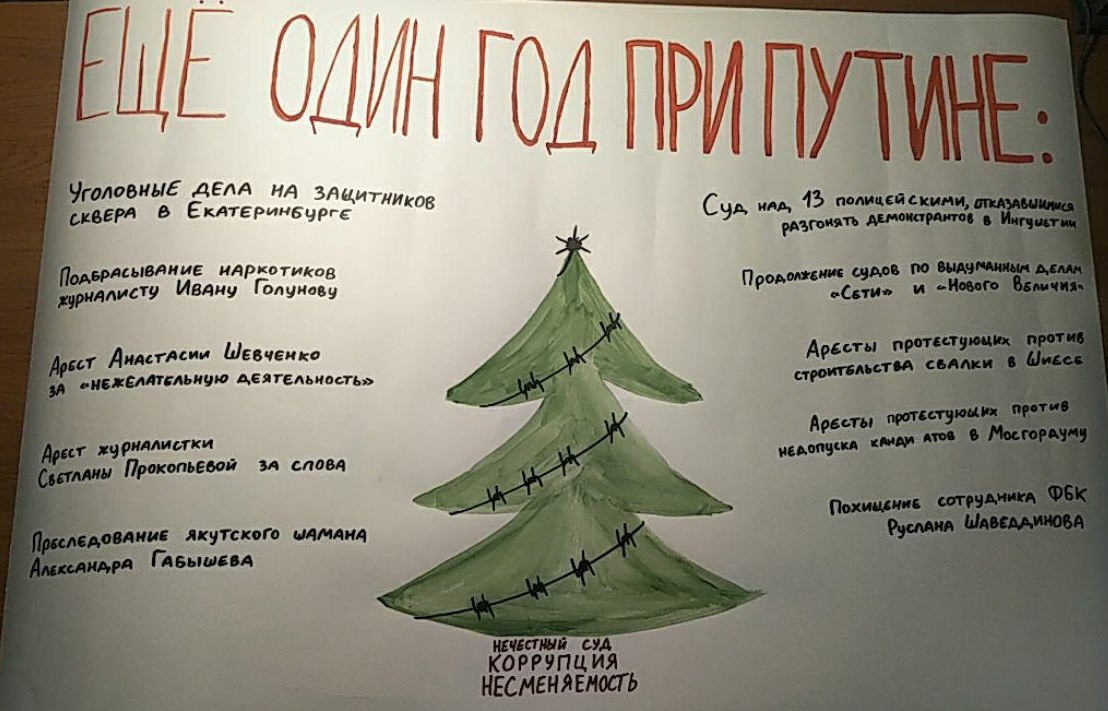 ЕЩЁ ОДИН ГОД ПРИ ПУТИНЕ:
Уголовные дела на защитников
сквера в Екатеринбурге
Подбрасывание наркотиков
журналисту Ивану Голунову
Арест Анастасии Шевченко
за «нежелательную деятельность»
Арест журналистки
Светланы Прокопьевой за слова
Преследование якутского шамана
Александра Габышева
Суд над 13 полицейскими, отказавшимися
разгонять демонстрантов в Ингушетии
Продолжение судов по выдуманным делам
«Сети» и «Нового Величия»
Аресты протестующих против
строительства свалки в Шиесе
Аресты протестующих против
недопуска канди атов в Мосгордуму
Похищение сотрудника ФБК
Руслана Шаведдинова
НЕЧЕСТНЫЙ СУД
КОРРУПЦИЯ
НЕСМЕНЯЕМОСТЬ